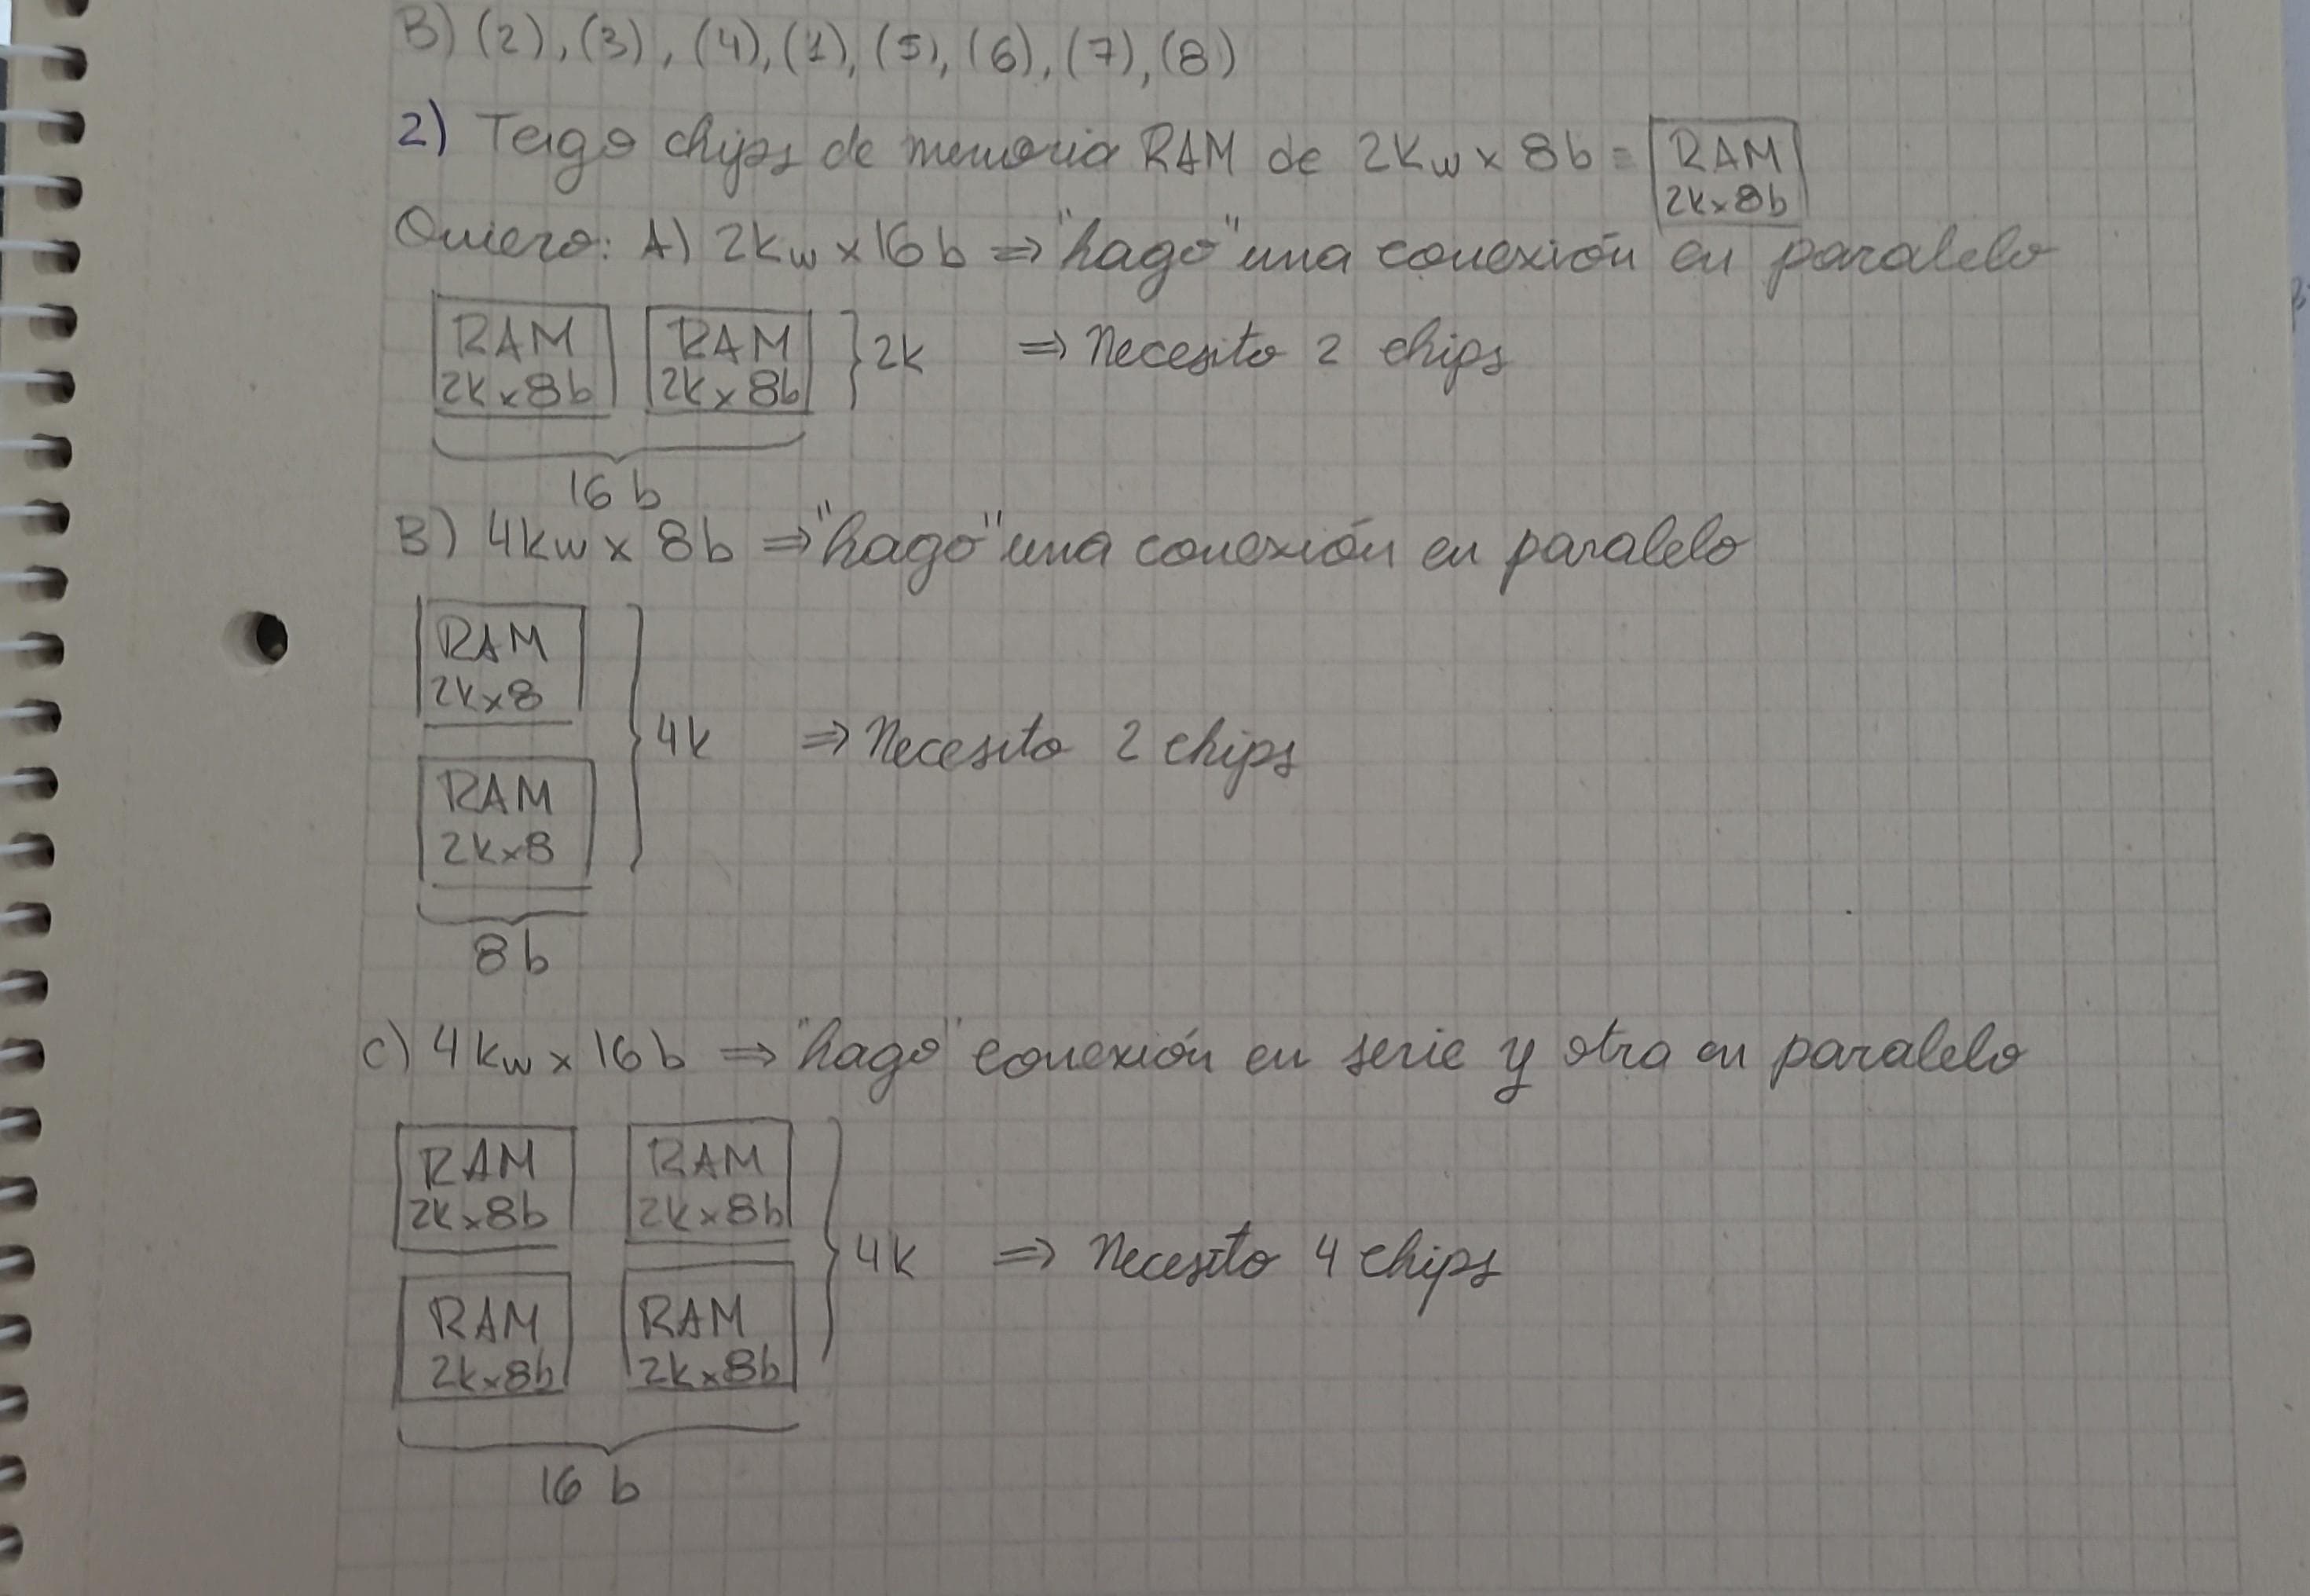 B) (2), (3), (4), (1), (5), (6), (7), (8)
2) Tengo chips de memoria RAM de 2Kw x 8b = RAM 2Kx8b
Quiero: A) 2Kw x 16b ⇒ "hago" una conexión en paralelo
RAM 2Kx8b RAM 2Kx8b } 2K ⇒ Necesito 2 chips
16 b
B) 4Kw x 8b ⇒ "hago" una conexión en paralelo
RAM
2Kx8
4K ⇒ Necesito 2 chips
RAM
2Kx8
8b
C) 4Kw x 16b ⇒ "hago" conexión en serie y otra en paralelo
RAM 2Kx8b RAM 2Kx8b
4K ⇒ Necesito 4 chips
RAM 2Kx8b RAM 2Kx8b
16 b